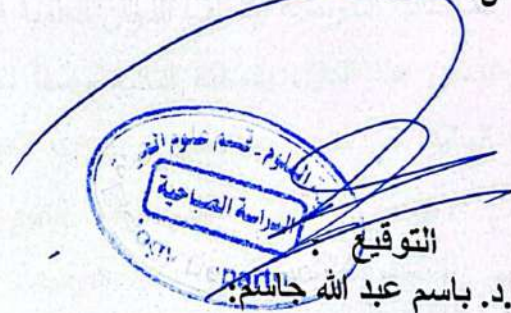 العلوم - قسم علوم
الدراسة الصباحية
Depart
التوقيع :
.د. باسم عبد الله جاسم: